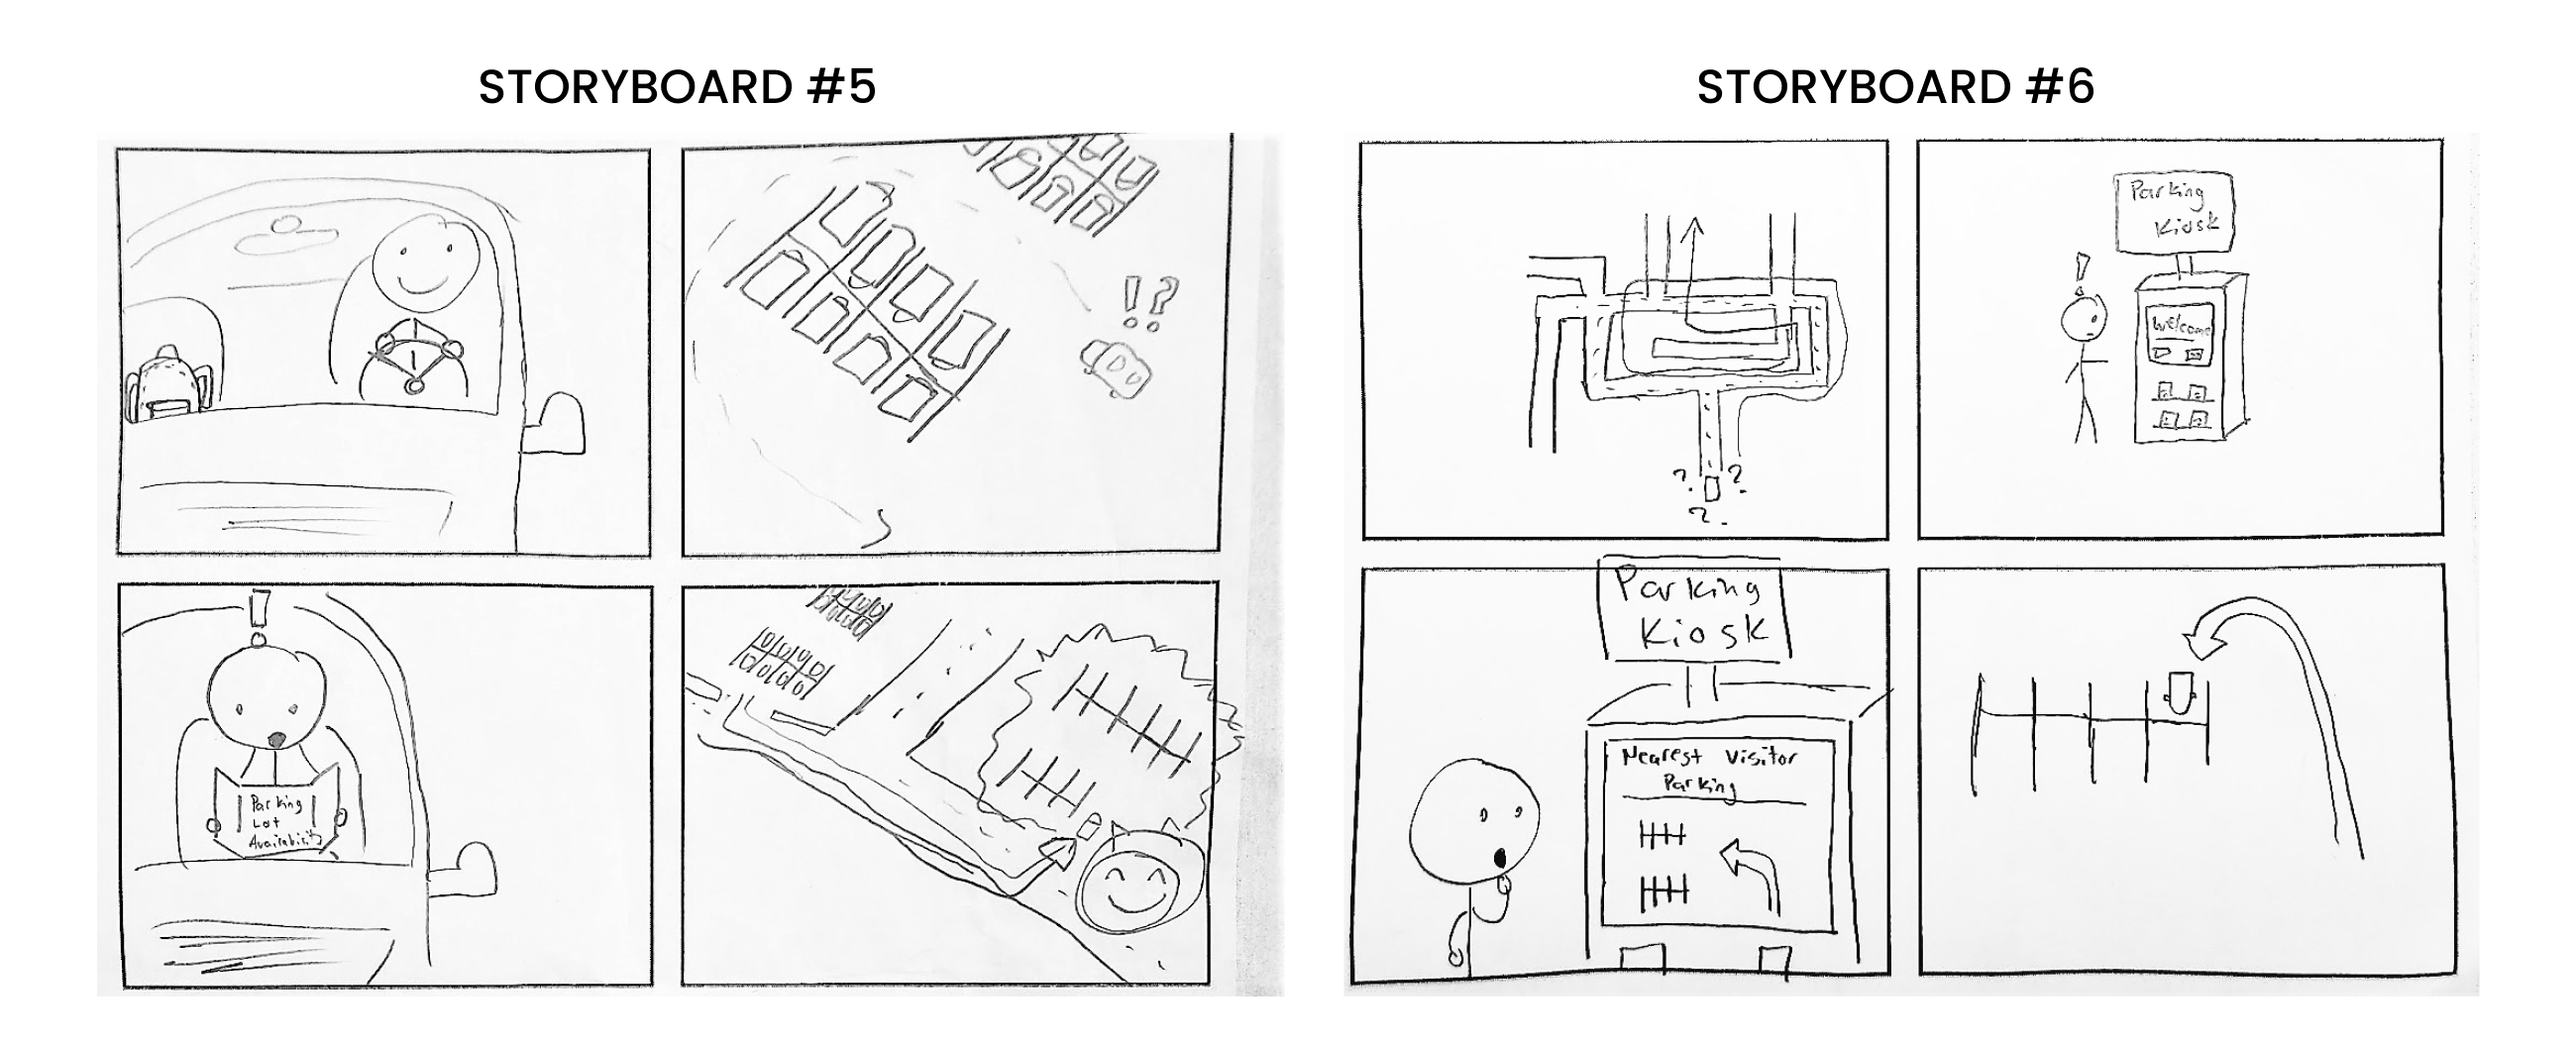 STORYBOARD #5
!?
!
Parking
Lot
Availability
STORYBOARD #6
? ?
?
Parking
Kiosk
!
Welcome
Parking
Kiosk
Nearest Visitor
Parking